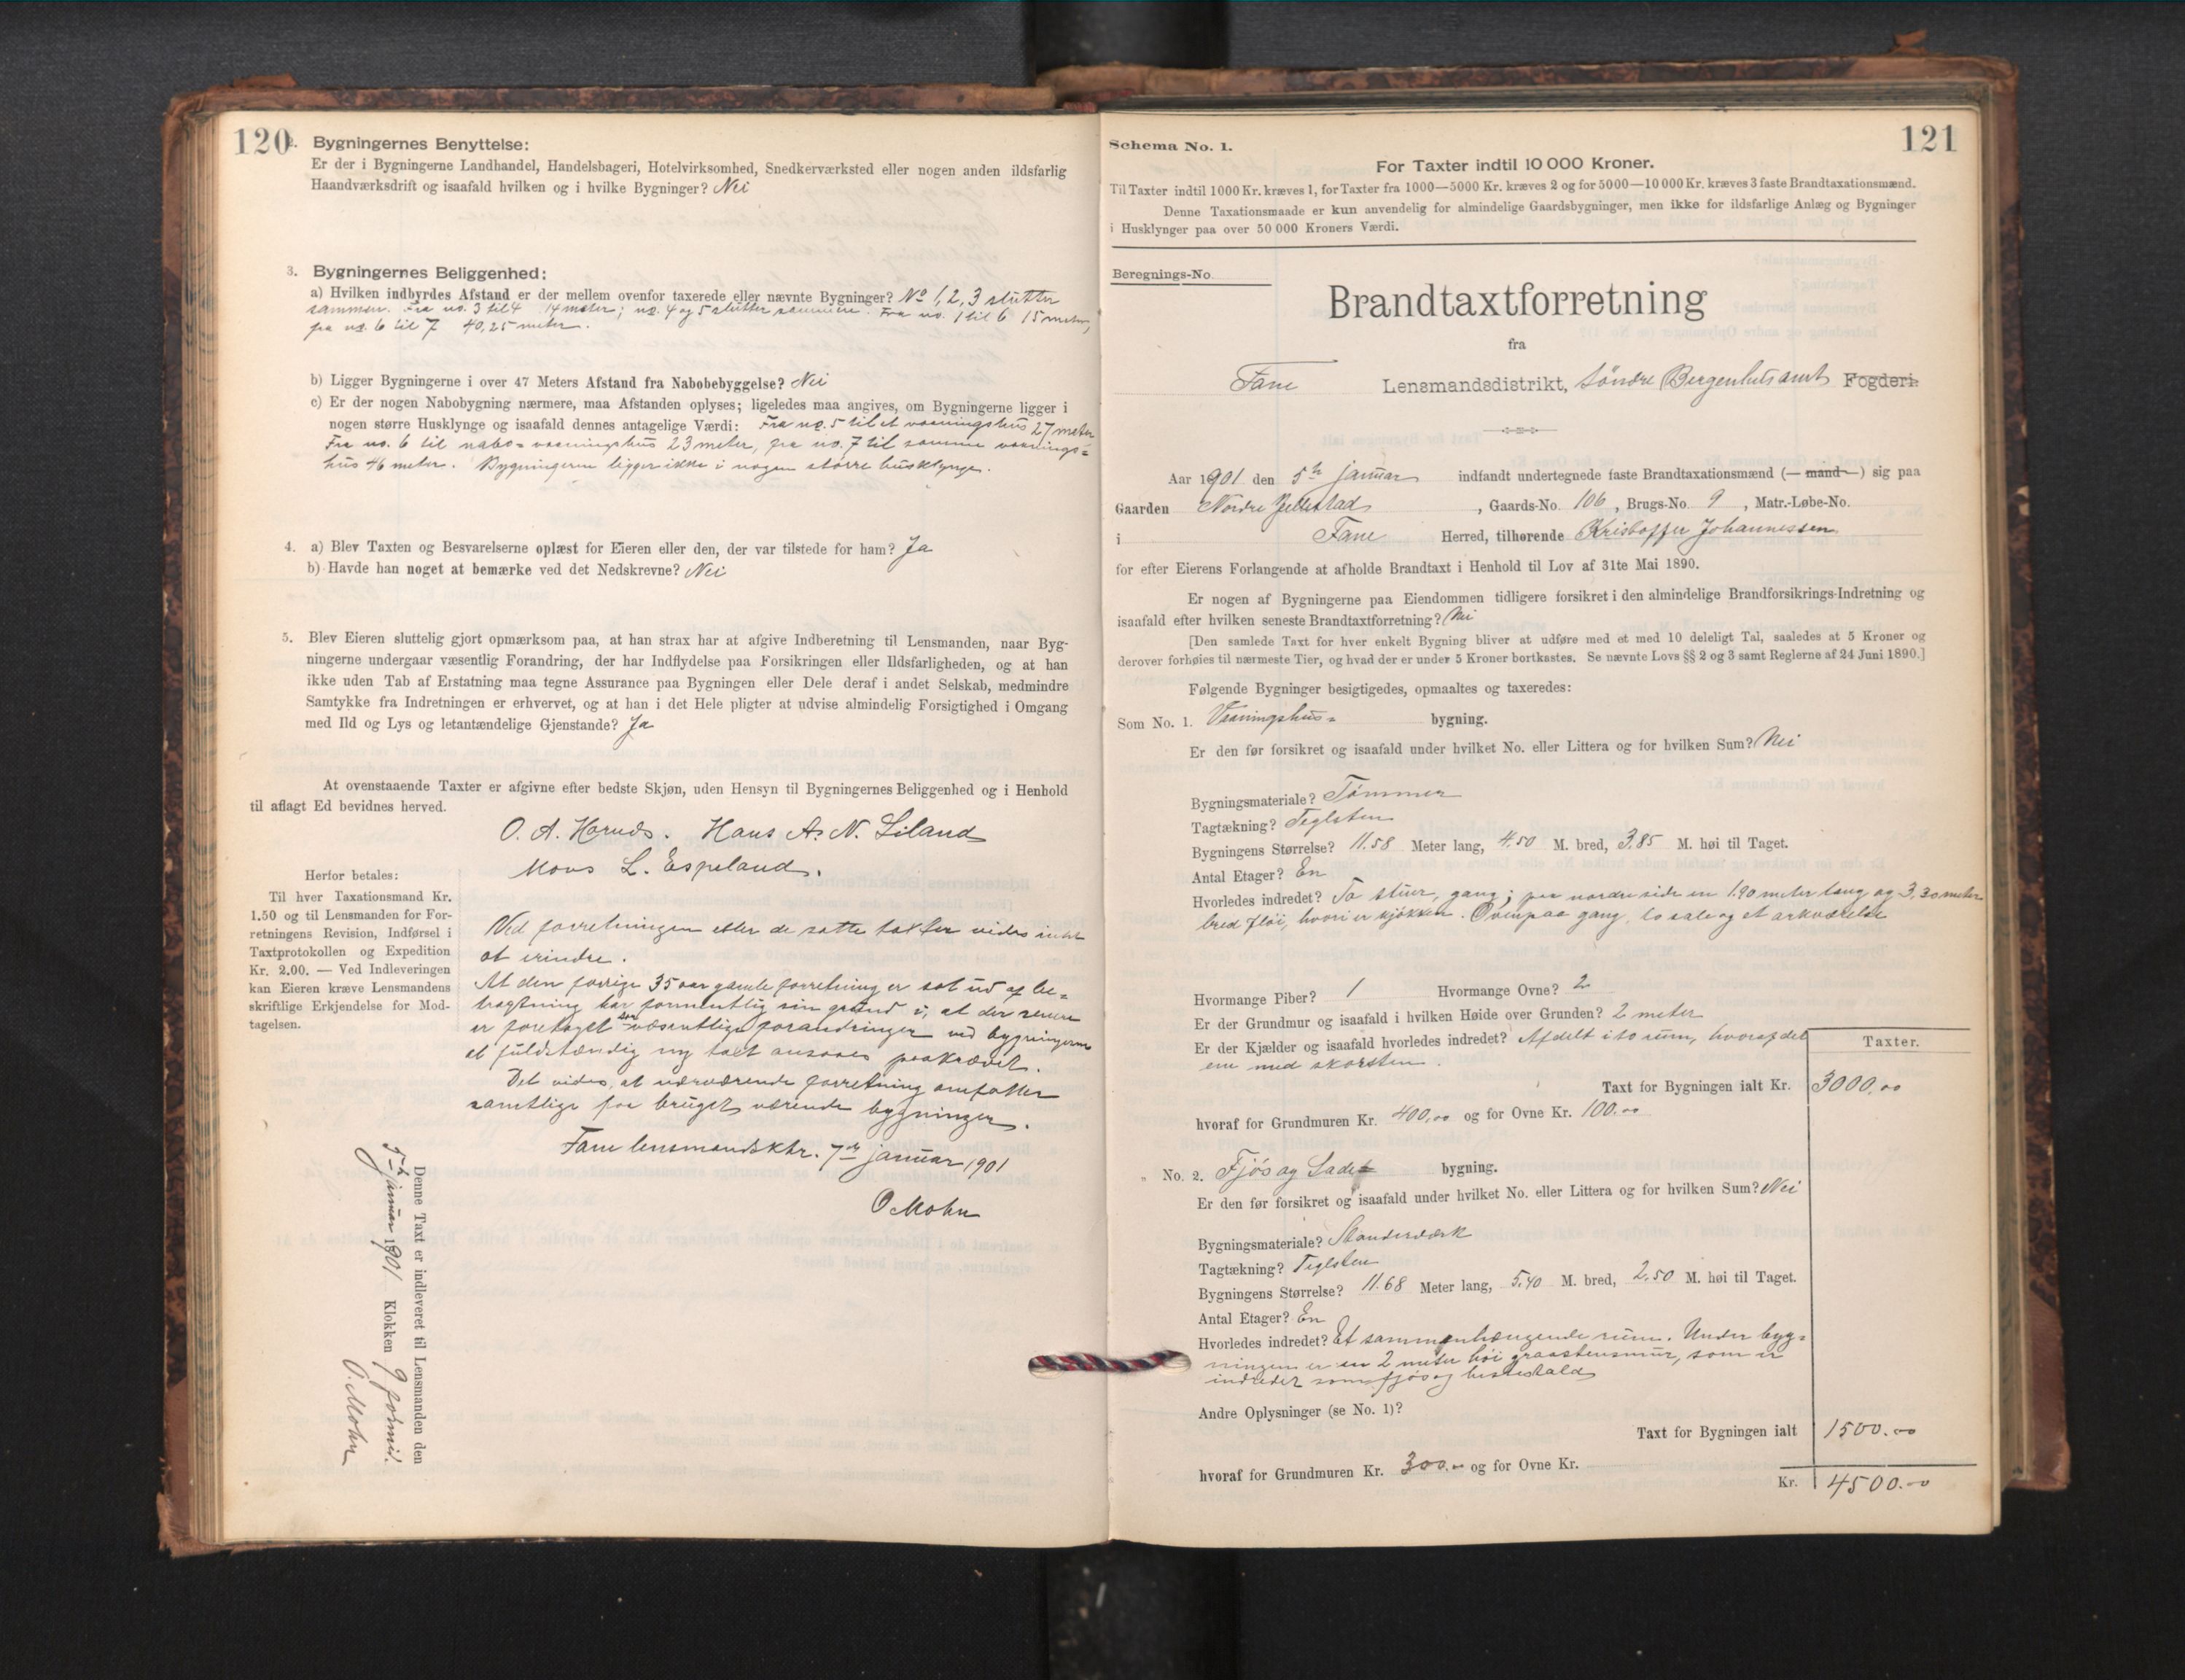 120
2. Bygningernes Benyttelse:
Er der i Bygningerne Landhandel, Handelsbageri, Hotelvirksomhed, Snedkerværksted eller nogen anden ildsfarlig
Haandværksdrift og isaafald hvilken og i hvilke Bygninger? Nei
3. Bygningernes Beliggenhed:
a) Hvilken indbyrdes Afstand er der mellem ovenfor taxerede eller nævnte Bygninger? No 1, 2, 3 slutter
sammen. Fra no. 3 til 4 14 meter; no. 4 og 5 slutter sammen. Fra no. 1 til 6 15 meter,
fra no. 6 til 7 40,25 meter.
b) Ligger Bygningerne i over 47 Meters Afstand fra Nabobebyggelse? Nei
c) Er der nogen Nabobygning nærmere, maa Afstanden oplyses; ligeledes maa angives, om Bygningerne ligger i
nogen større Husklynge og isaafald dennes antagelige Værdi: Fra no. 5 til et vaaningshus 27 meter
Fra no. 6 til nabo-vaaningshus 23 meter, fra no. 7 til samme vaanings=
hus 46 meter. Bygningerne ligger ikke i nogen større husklynge.
4. a) Blev Taxten og Besvarelserne oplæst for Eieren eller den, der var tilstede for ham? Ja
b) Havde han noget at bemærke ved det Nedskrevne? Nei
5. Blev Eieren sluttelig gjort opmærksom paa, at han strax har at afgive Indberetning til Lensmanden, naar Byg-
ningerne undergaar væsentlig Forandring, der har Indflydelse paa Forsikringen eller Ildsfarligheden, og at han
ikke uden Tab af Erstatning maa tegne Assurance paa Bygningen eller Dele deraf i andet Selskab, medmindre
Samtykke fra Indretningen er erhvervet, og at han i det Hele pligter at udvise almindelig Forsigtighed i Omgang
med Ild og Lys og letantændelige Gjenstande? Ja
At ovenstaaende Taxter er afgivne efter bedste Skjøn, uden Hensyn til Bygningernes Beliggenhed og i Henhold
til aflagt Ed bevidnes herved.
O. A. Hans A. N. Liland
Mons L. Espeland.
Herfor betales:
Til hver Taxationsmand Kr.
1.50 og til Lensmanden for For-
retningens Revision, Indførsel i
Taxtprotokollen og Expedition
Kr. 2.00. — Ved Indleveringen
kan Eieren kræve Lensmandens
skriftlige Erkjendelse for Mod-
tagelsen.
Ved forretningen eller de satte takster vides intet
at erindre.
At den forrige 35 aar gamle forretning er sat ud af be=
tragtning har formentlig sin grund i, at der senere
er foretaget saa væsentlige forandringer ved bygningerne
at fuldstændig ny taxt ansaaes paakrævet.
Det vides, at nærværende forretning omfatter
samtlige paa bruget værende bygninger.
Fane lensmandsktr. 7de januar 1901
O Mohn
Denne Taxt er indleveret til Lensmanden den
5te januar 1901 Klokken 9 formid.
O. Mohn
121
Schema No. 1.
For Taxter indtil 10 000 Kroner.
Til Taxter indtil 1000 Kr. kræves 1, for Taxter fra 1000—5000 Kr. kræves 2 og for 5000—10 000 Kr. kræves 3 faste Brandtaxationsmænd.
Denne Taxationsmaade er kun anvendelig for almindelige Gaardsbygninger, men ikke for ildsfarlige Anlæg og Bygninger
i Husklynger paa over 50 000 Kroners Værdi.
Beregnings-No.
Brandtaxtforretning
fra
Fane Lensmandsdistrikt, Söndre Bergenhus amt Fogderi.
Aar 1901 den 5te januar indfandt undertegnede faste Brandtaxationsmænd (— mand —) sig paa
Gaarden Nordre Jellestad, Gaards-No. 106, Brugs-No. 9, Matr.-Løbe-No.
i Fane Herred, tilhørende Kristoffer Johannessen
for efter Eierens Forlangende at afholde Brandtaxt i Henhold til Lov af 31te Mai 1890.
Er nogen af Bygningerne paa Eiendommen tidligere forsikret i den almindelige Brandforsikrings-Indretning og
isaafald efter hvilken seneste Brandtaxtforretning? Nei
[Den samlede Taxt for hver enkelt Bygning bliver at udføre med et med 10 deleligt Tal, saaledes at 5 Kroner og
derover forhøies til nærmeste Tier, og hvad der er under 5 Kroner bortkastes. Se nævnte Lovs §§ 2 og 3 samt Reglerne af 24 Juni 1890.]
Følgende Bygninger besigtigedes, opmaaltes og taxeredes:
Som No. 1. Vaaningshus= bygning.
Er den før forsikret og isaafald under hvilket No. eller Littera og for hvilken Sum? Nei
Bygningsmateriale? Tömmer
Tagtækning? Teglsten
Bygningens Størrelse? 11.58 Meter lang, 4.50 M. bred, 3.85 M. høi til Taget.
Antal Etager? En
Hvorledes indredet? To stuer, gang; paa nordre side en 1.90 meter lang og 3,30 meter
bred fløi, hvori er kjökken. Ovenpaa gang, to sale og et arkværelse
Hvormange Piber? 1 Hvormange Ovne? 2
Er der Grundmur og isaafald i hvilken Høide over Grunden? 2 meter
Er der Kjælder og isaafald hvorledes indredet? Afdelt i to rum, hvoraf det
ene med skorsten.
Taxter.
Taxt for Bygningen ialt Kr. 3000,00
hvoraf for Grundmuren Kr. 400,00 og for Ovne Kr. 100.00
No. 2. Fjös og Lade bygning.
Er den før forsikret og isaafald under hvilket No. eller Littera og for hvilken Sum? Nei
Bygningsmateriale? Standerværk
Tagtækning? Teglsten
Bygningens Størrelse? 11.68 Meter lang, 5.40 M. bred, 2.50 M. høi til Taget.
Antal Etager? En
Hvorledes indredet? Et sammenhængende rum. Under byg=
ningen er en 2 meter høi graastensmur, som er
indredet som fjös og hestestald
Andre Oplysninger (se No. 1)?
Taxt for Bygningen ialt 1500.00
hvoraf for Grundmuren Kr. 300.00 og for Ovne Kr.
Kr. 4500.00